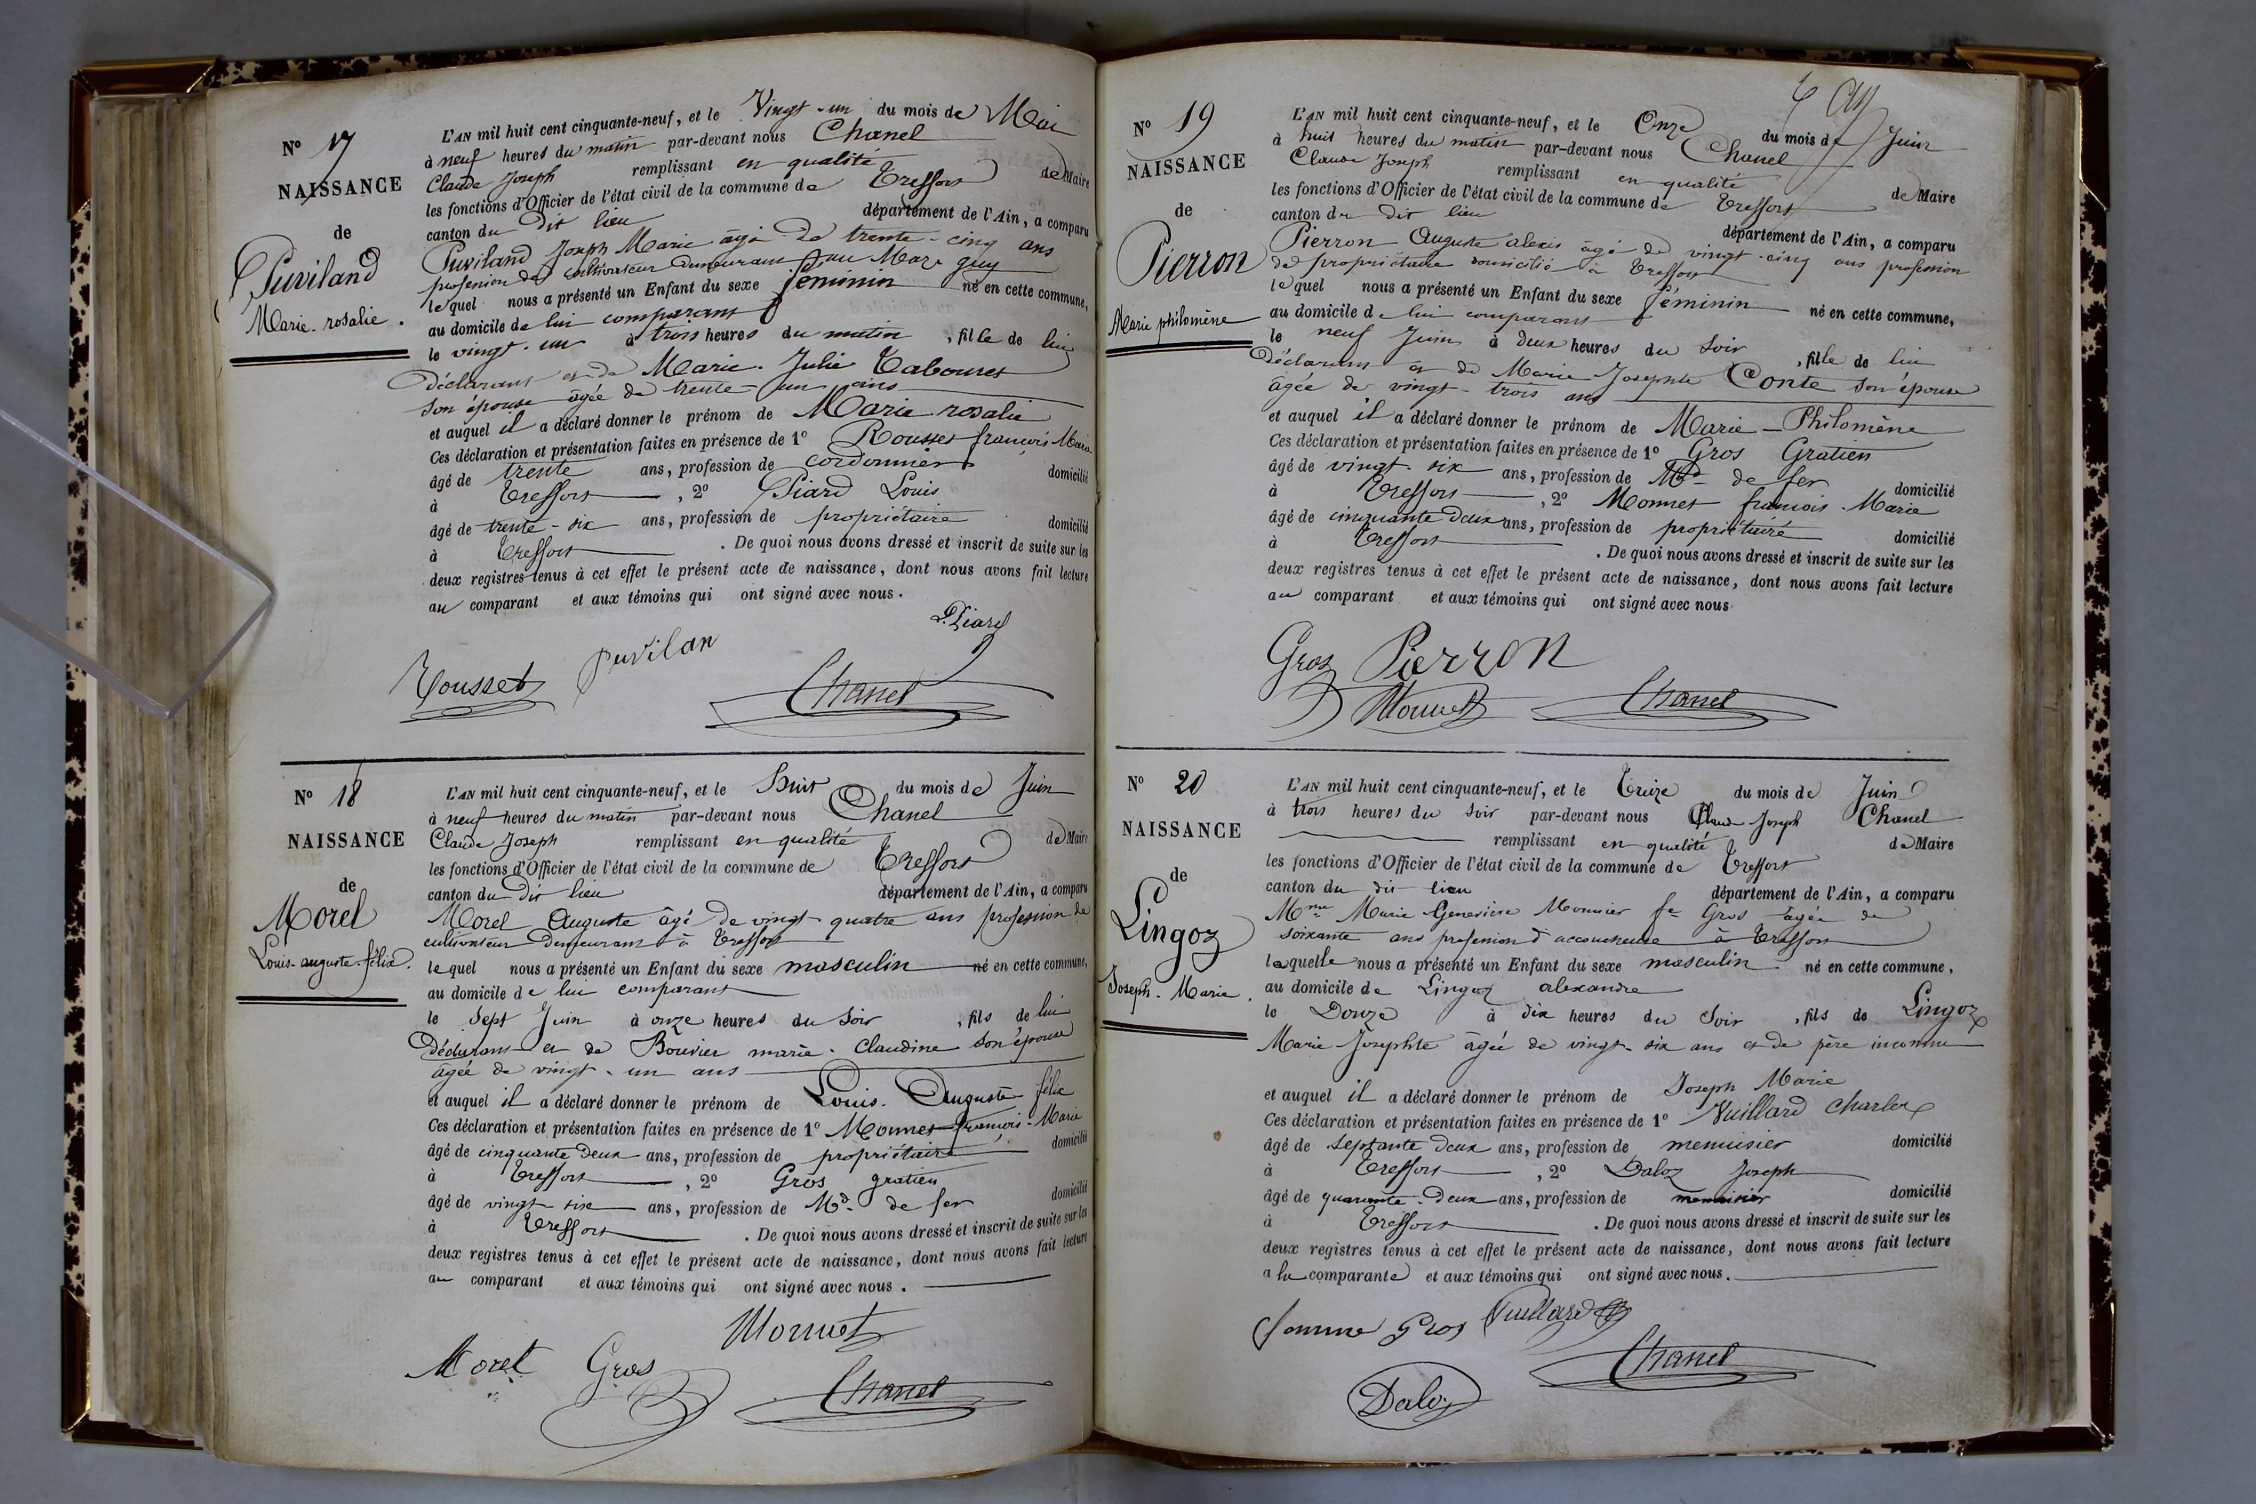 N° 17
NAISSANCE
de
Puviland
Marie-rosalie.
L'AN mil huit cent cinquante-neuf, et le Vingt-un du mois de Mai
à neuf heures du matin par-devant nous Chanel
Claude Joseph remplissant en qualité de Maire
les fonctions d'Officier de l'état civil de la commune de Treffort
canton du dit lieu département de l'Ain, a comparu
Puviland Joseph Marie âgé de trente-cinq ans
profession de cultivateur demeurant au Mare guy
lequel nous a présenté un Enfant du sexe féminin né en cette commune,
au domicile de lui comparant
le vingt-un à trois heures du matin, fille de lui
Déclarant et de Marie-Julie Tabouret
son épouse âgée de trente-un ans
et auquel il a déclaré donner le prénom de Marie rosalie
Ces déclaration et présentation faites en présence de 1° Rousset françois Marie
âgé de trente ans, profession de cordonnier domicilié
à Treffort, 2° Piard Louis
âgé de trente-six ans, profession de propriétaire domicilié
à Treffort. De quoi nous avons dressé et inscrit de suite sur les
deux registres tenus à cet effet le présent acte de naissance, dont nous avons fait lecture
au comparant et aux témoins qui ont signé avec nous.
L. Piard
Rousset puvilan
Chanel
N° 18
NAISSANCE
de
Morel
Louis-auguste-félix.
L'AN mil huit cent cinquante-neuf, et le Huit du mois de Juin
à neuf heures du matin par-devant nous Chanel
Claude Joseph remplissant en qualité de Maire
les fonctions d'Officier de l'état civil de la commune de Treffort
canton du dit lieu département de l'Ain, a comparu
Morel Auguste âgé de vingt-quatre ans profession de
cultivateur demeurant à Treffort
lequel nous a présenté un Enfant du sexe masculin né en cette commune,
au domicile de lui comparant
le sept Juin à onze heures du soir, fils de lui
Déclarant et de Bouvier marie-Claudine son épouse
âgée de vingt-un ans
et auquel il a déclaré donner le prénom de Louis-Auguste-félix
Ces déclaration et présentation faites en présence de 1° Monnet françois-Marie
âgé de cinquante deux ans, profession de propriétaire domicilié
à Treffort, 2° Gros gratien
âgé de vingt-six ans, profession de Md de fer domicilié
à Treffort. De quoi nous avons dressé et inscrit de suite sur les
deux registres tenus à cet effet le présent acte de naissance, dont nous avons fait lecture
au comparant et aux témoins qui ont signé avec nous.
Monnet
Morel Gros
Chanel
N° 19
NAISSANCE
de
Pierron
Marie philomène
L'AN mil huit cent cinquante-neuf, et le Onze du mois de Juin
à huit heures du matin par-devant nous Chanel
Claude Joseph remplissant en qualité de Maire
les fonctions d'Officier de l'état civil de la commune de Treffort
canton du dit lieu département de l'Ain, a comparu
Pierron Auguste alexis âgé de vingt-cinq ans profession
de propriétaire domicilié à Treffort
lequel nous a présenté un Enfant du sexe féminin né en cette commune,
au domicile de lui comparant
le neuf Juin à deux heures du soir, fille de lui
Déclarant et de Marie Josephte Conte son épouse
âgée de vingt-trois ans
et auquel il a déclaré donner le prénom de Marie-Philomène
Ces déclaration et présentation faites en présence de 1° Gros Gratien
âgé de vingt-six ans, profession de Md de fer domicilié
à Treffort, 2° Monnet françois-Marie
âgé de cinquante deux ans, profession de propriétaire domicilié
à Treffort. De quoi nous avons dressé et inscrit de suite sur les
deux registres tenus à cet effet le présent acte de naissance, dont nous avons fait lecture
au comparant et aux témoins qui ont signé avec nous
Gros Pierron
Monnet Chanel
N° 20
NAISSANCE
de
Lingoz
Joseph-Marie.
L'AN mil huit cent cinquante-neuf, et le Treize du mois de Juin
à trois heures du soir par-devant nous Claude Joseph Chanel
remplissant en qualité de Maire
les fonctions d'Officier de l'état civil de la commune de Treffort
canton du dit-lieu département de l'Ain, a comparu
Mme Marie Geneviève Monnier fe Gros âgée de
soixante ans profession d'accoucheuse à Treffort
laquelle nous a présenté un Enfant du sexe masculin né en cette commune,
au domicile de Lingoz alexandre
le Douze à dix heures du soir, fils de Lingoz
Marie Josephte âgée de vingt-six ans et de père inconnu
et auquel il a déclaré donner le prénom de Joseph Marie
Ces déclaration et présentation faites en présence de 1° Vuillard Charles
âgé de septante deux ans, profession de menuisier domicilié
à Treffort, 2° Daloz Joseph
âgé de quarante-deux ans, profession de menuisier domicilié
à Treffort. De quoi nous avons dressé et inscrit de suite sur les
deux registres tenus à cet effet le présent acte de naissance, dont nous avons fait lecture
a la comparante et aux témoins qui ont signé avec nous.
femme Gros Vuillard
Chanel
Daloz